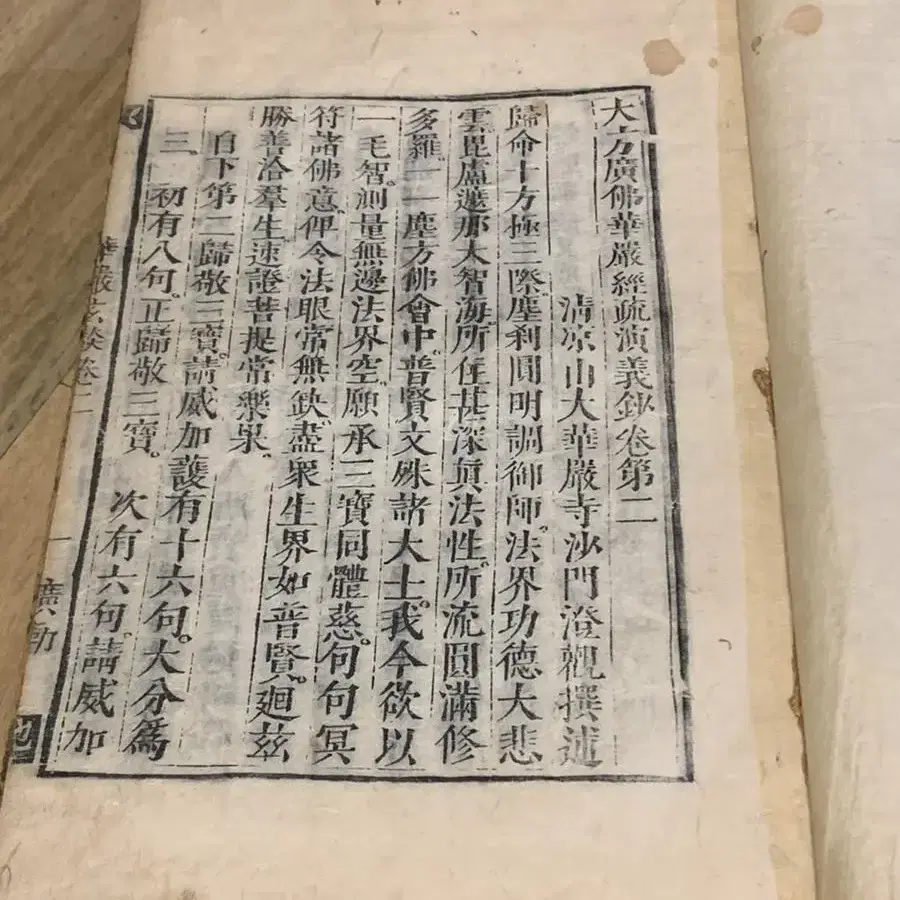 大方廣佛華嚴經疏演義鈔卷第二
清凉山大華嚴寺沙門澄觀撰述
歸命十方極三際。塵刹圓明調御師。法界功德大悲
雲。毘盧遮那大智海。所在甚深眞法性。所流圓滿修
多羅。一一塵方佛會中。普賢文殊諸大士。我今欲以
一毛智。測量無邊法界空。願承三寶同體慈。句句冥
符諸佛意。俾令法眼常無缺。盡衆生界如普賢。廻茲
勝善洽羣生。速證菩提常樂果。
自下第二歸敬三寶。請威加護。有十六句。大分爲
三 初有八句。正歸敬三寶。 次有六句。請威加
華嚴玄談卷二
一